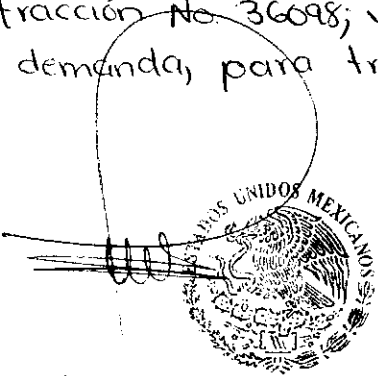 tracción No. 36098;
demanda, para tr
UNIDOS MEXICANOS